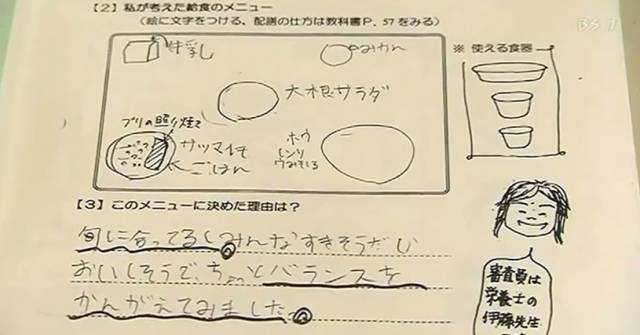 【2】私が考えた給食のメニュー
（絵に文字をつける、配膳の仕方は教科書P. 57をみる）
BS 1
牛乳
みかん
※ 使える食器
大根サラダ
ブリの照り焼き
サツマイモ
ごはん
ホウ
レンソ
ウみそしる
【3】このメニューに決めた理由は？
旬に合ってるしみんなすきそうだし
おいしそうで、ちょっとバランスを
かんがえてみました。
審査員は
栄養士の
伊藤先生